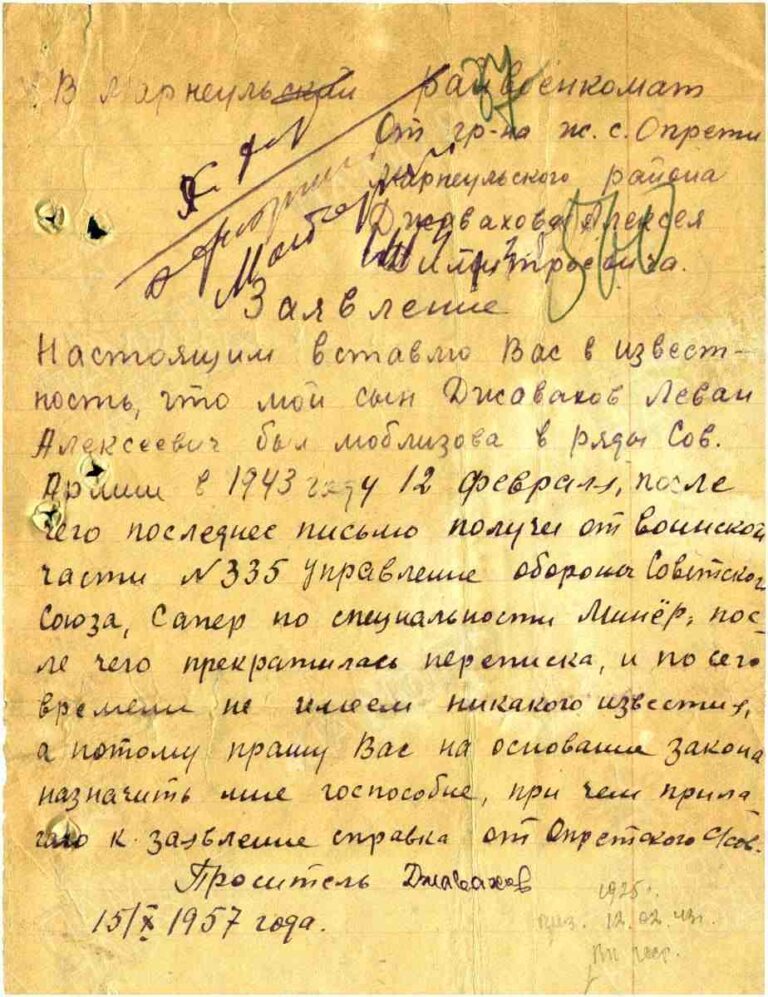 В Марнеульский Райвоенкомат
37
От гр-на ж. с. Опрети
Марнеульского района
Джавахова Алексея
Димитровича.
Заявление
Настоящим вставлю Вас в извест-
ность, что мой сын Джавахов Леван
Алексеевич был моблизова в ряды Сов.
Армии в 1943 году 12 февраля, после
чего последнее письмо получен от воинской
части N 335 управление обороны Советског
Союза, Сапер по специальности Минёр, пос-
ле чего прекратилась переписка, и по сего
времени не имеем никакого известия,
а потому прашу Вас на основании закона
назначить мне госпособие, при чем прила
гаю к заявление справка от Опретского с/сов.
Проситель Джавахов
15/X 1957 года.
1925г.
приз. 12.02.43г.